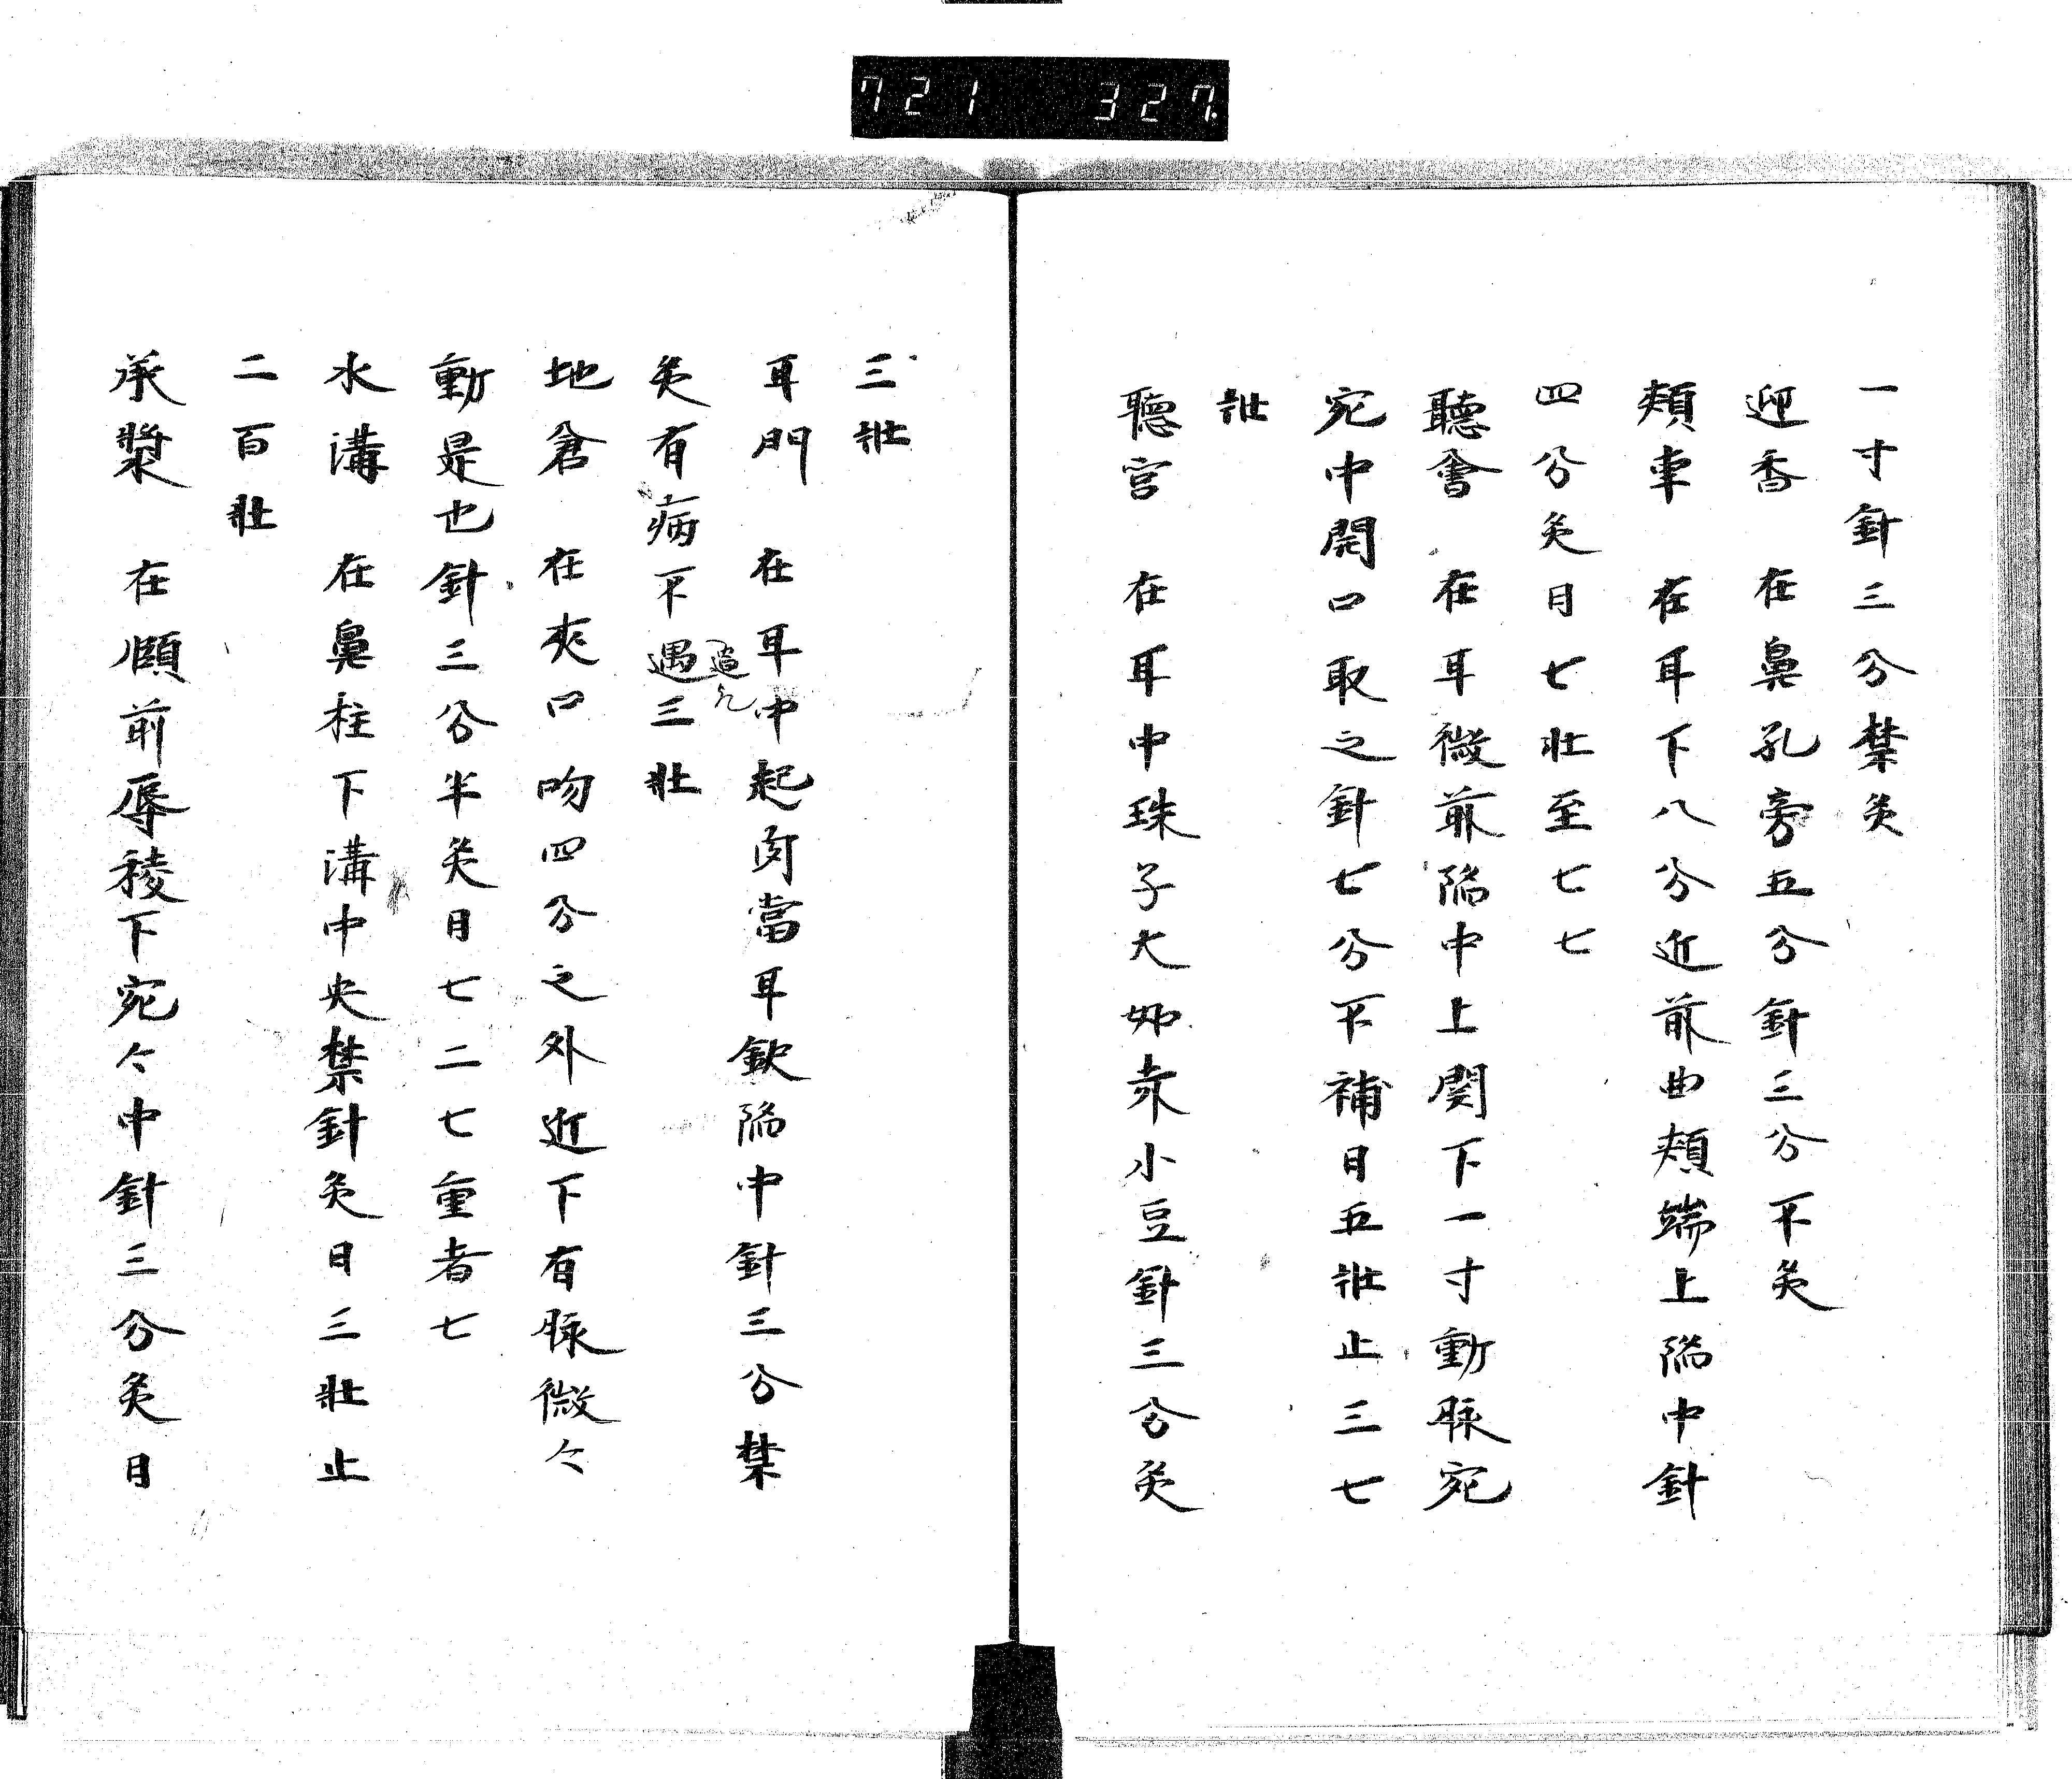 721 327
一寸針三分禁灸
迎香　在鼻孔旁五分針三分不灸
頬車　在耳下八分近前曲頬端上陥中針
四分灸日七壮至七七
聽會　在耳微前陥中上関下一寸動脉宛
宛中開口取之針七分不補日五壮止三七
壮
聽宮　在耳中珠子大如赤小豆針三分灸
三壮
耳門　在耳中起肉當耳缺陥中針三分禁
灸有病不遇三壮
過
地倉　在夾口吻四分之外近下有脉微々
動是也針三分半灸日七二七重者七
水溝　在鼻柱下溝中央禁針灸日三壮止
二百壮
承漿　在頤前唇稜下宛々中針三分灸日